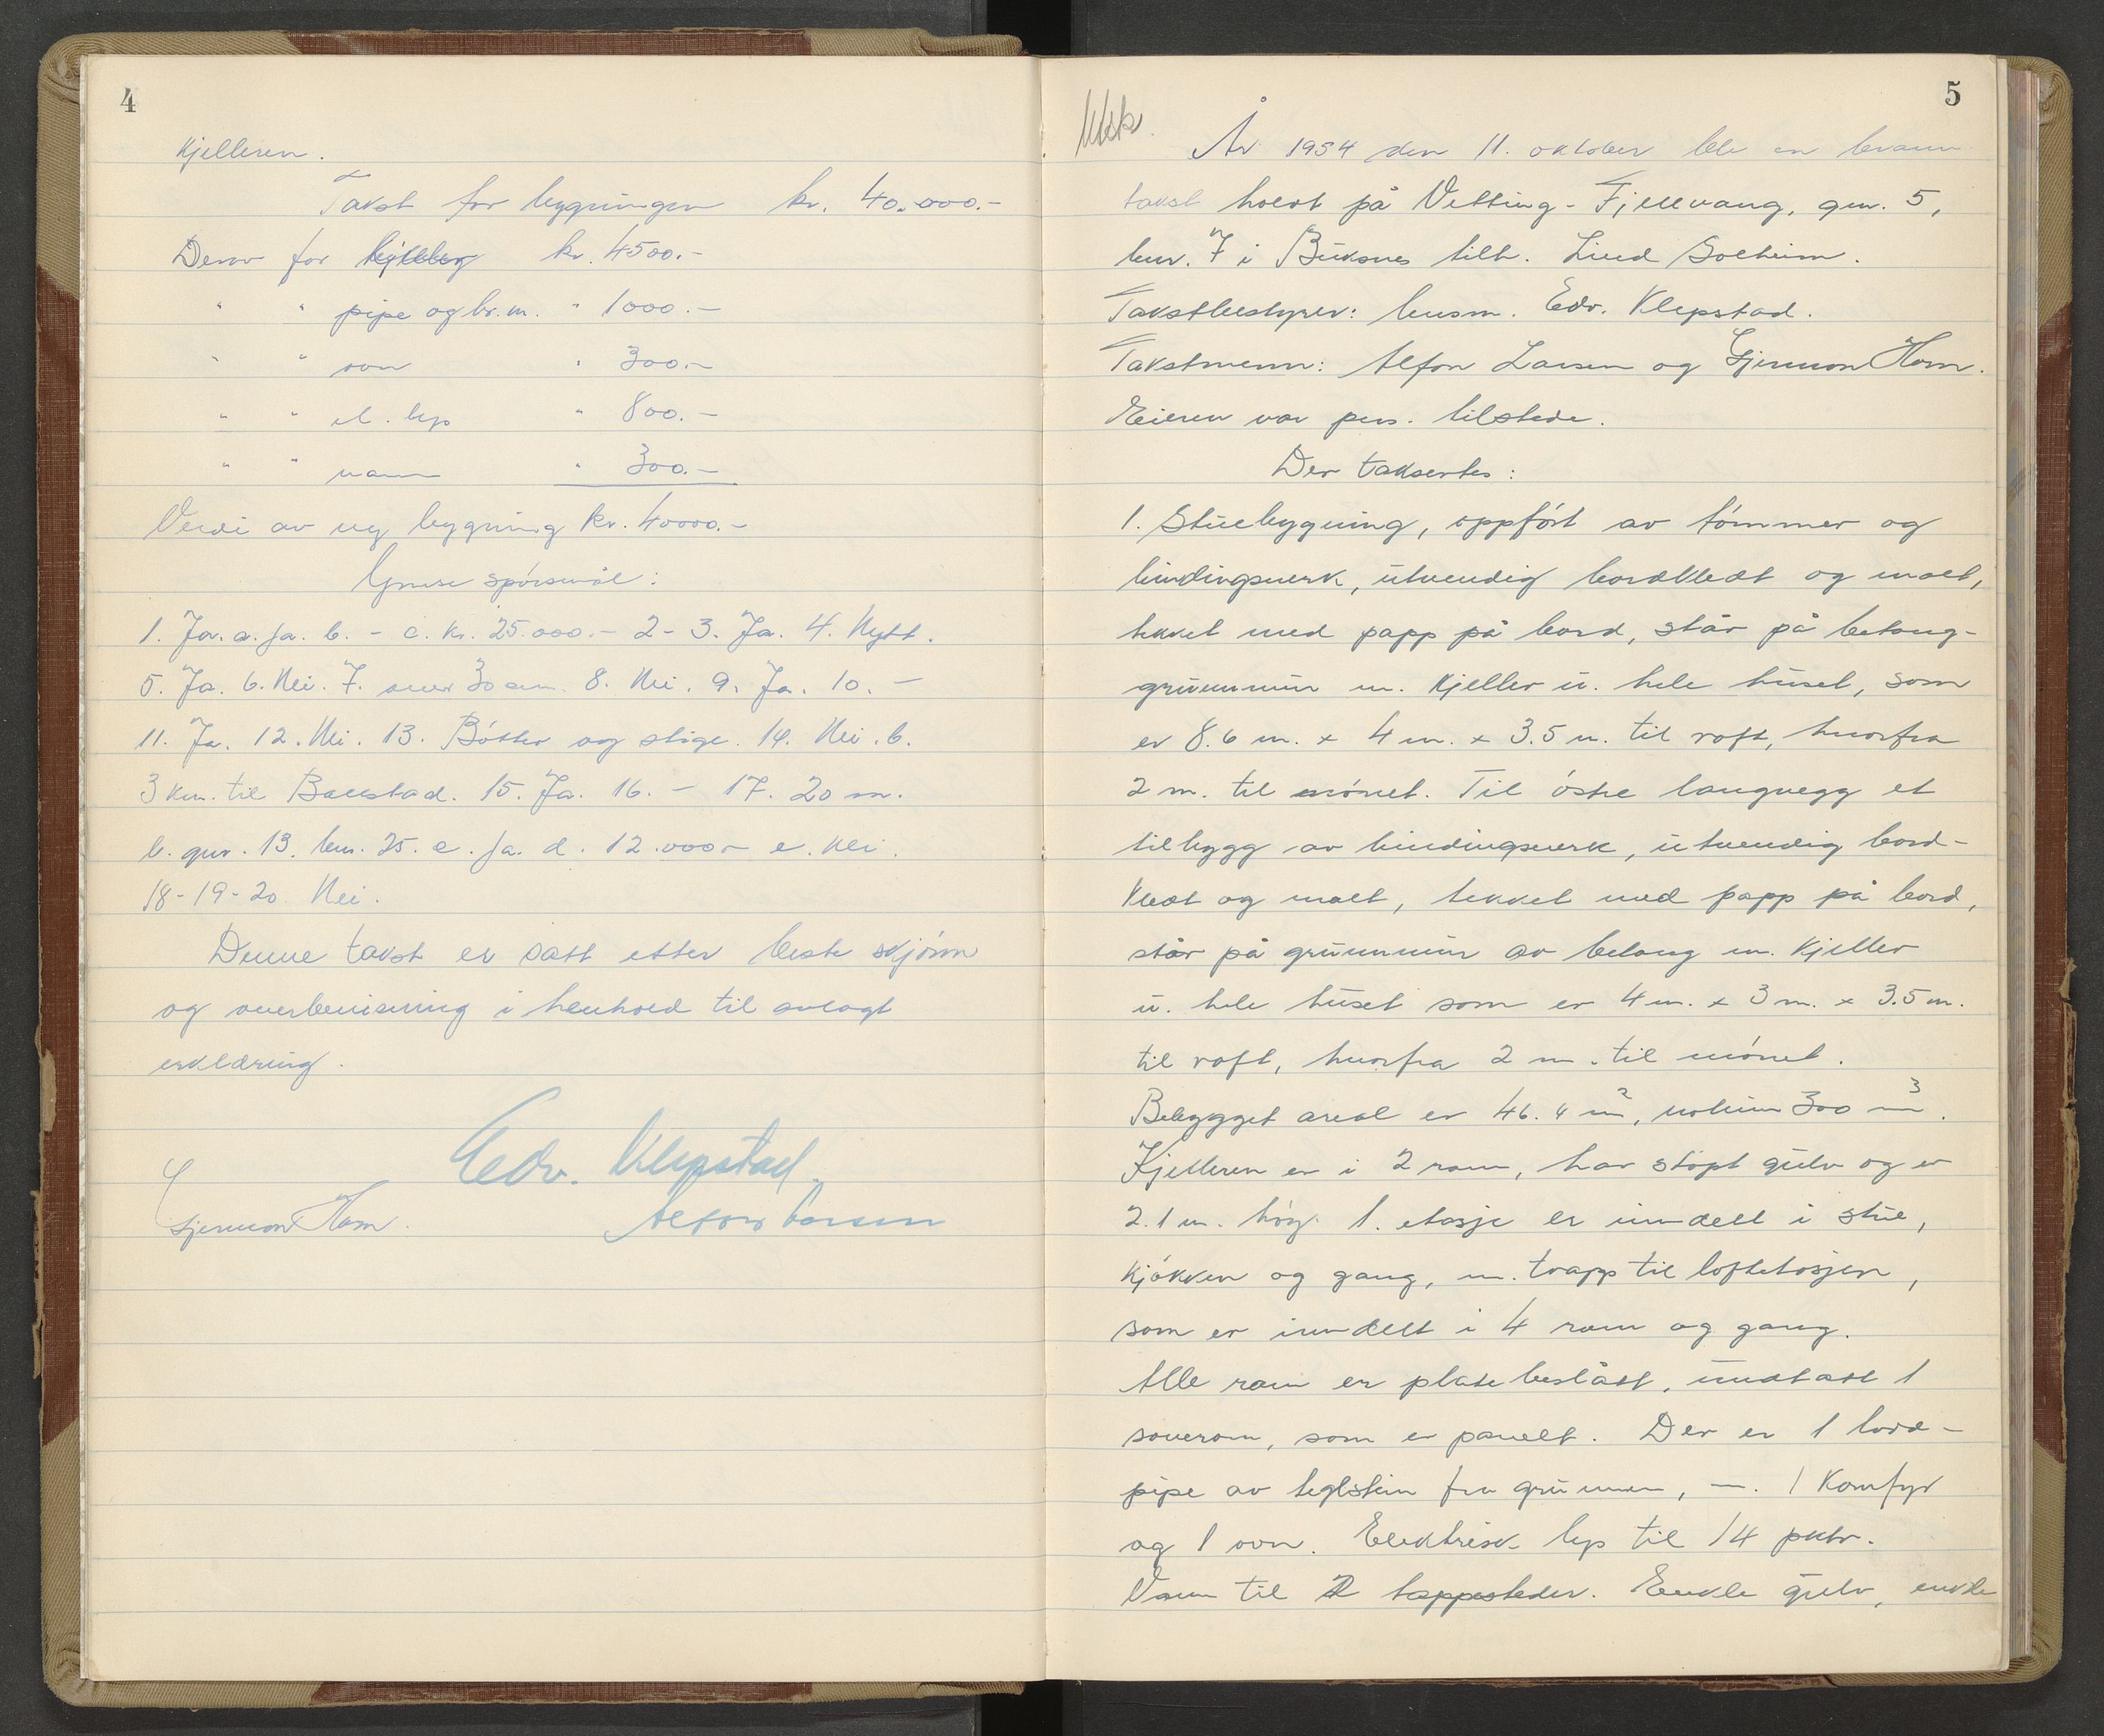 4
Kjelleren.
Takst for bygningen kr. 40.000.-
Derav for kjeller kr. 4500.-
" " pipe og br.m. " 1000.-
" " ovn " 300.-
" " el. lys " 800.-
" " vann " 300.-
Verdi av ny bygning kr. 40000.-
Ymse spórsmål:
1. Ja. a. Ja. b. - c. Kr. 25.000.- 2- 3. Ja. 4. Nytt.
5. Ja. 6. Nei. 7. over 30 cm. 8. Nei. 9. Ja. 10. -
11. Ja. 12. Nei. 13. Bótter og stige. 14. Nei. b.
3 km. til Ballstad. 15. Ja. 16. - 17. 20 m.
b. gnr. 13. bnr. 25. c. Ja. d. 12.000.- e. Nei.
18-19-20. Nei.
Denne takst er satt etter beste skjónn
og overbevisning i henhold til avlagt
erklæring.
Edv. Klepstad.
Gjermon Ham. Alfon Larsen
5
År 1954 den 11. oktober ble en brann
takst holdt på Vetting-Fjellvang, gnr. 5,
bnr. 7 i Buksnes tilh. Lind Solheim.
Takstbestyrer: lensm. Edv. Klepstad.
Takstmenn: Alfon Larsen og Gjermon Ham.
Eieren var pers. tilstede.
Der taksertes:
1. Stuebygning, oppfórt av tómmer og
bindingsverk, utvendig bordkledt og malt,
tekket med papp på bord, står på betong-
grunnmur m. Kjeller u. hele huset, som
er 8.6 m. x 4 m. x 3.5 m. til raft, hvorfra
2 m. til mónet. Til óstre langvegg et
tilbygg av bindingsverk, utvendig bord-
kledt og malt, tekket med papp på bord,
står på grunnmur av betong m. Kjeller
u. hele huset som er 4 m. x 3 m. x 3.5 m.
til raft, hvorfra 2 m. til mónet.
Bebygget areal er 46.4 m², volum 300 m³.
Kjelleren er i 2 rom, har stópt gulv og er
2.1 m. hóg. 1. etasje er inndelt i stue,
kjókken og gang, m. trapp til loftetasjen,
som er inndelt i 4 rom og gang.
Alle rom er platebeslått, undtatt 1
soverom, som er panelt. Der er 1 lovl-
pipe av teglstein fra grunnen, —. 1 Komfyr
og 1 ovn. Elektrisk lys til 14 pktr.
Vann til 2 tappesteder. Enkle gulv, enkle